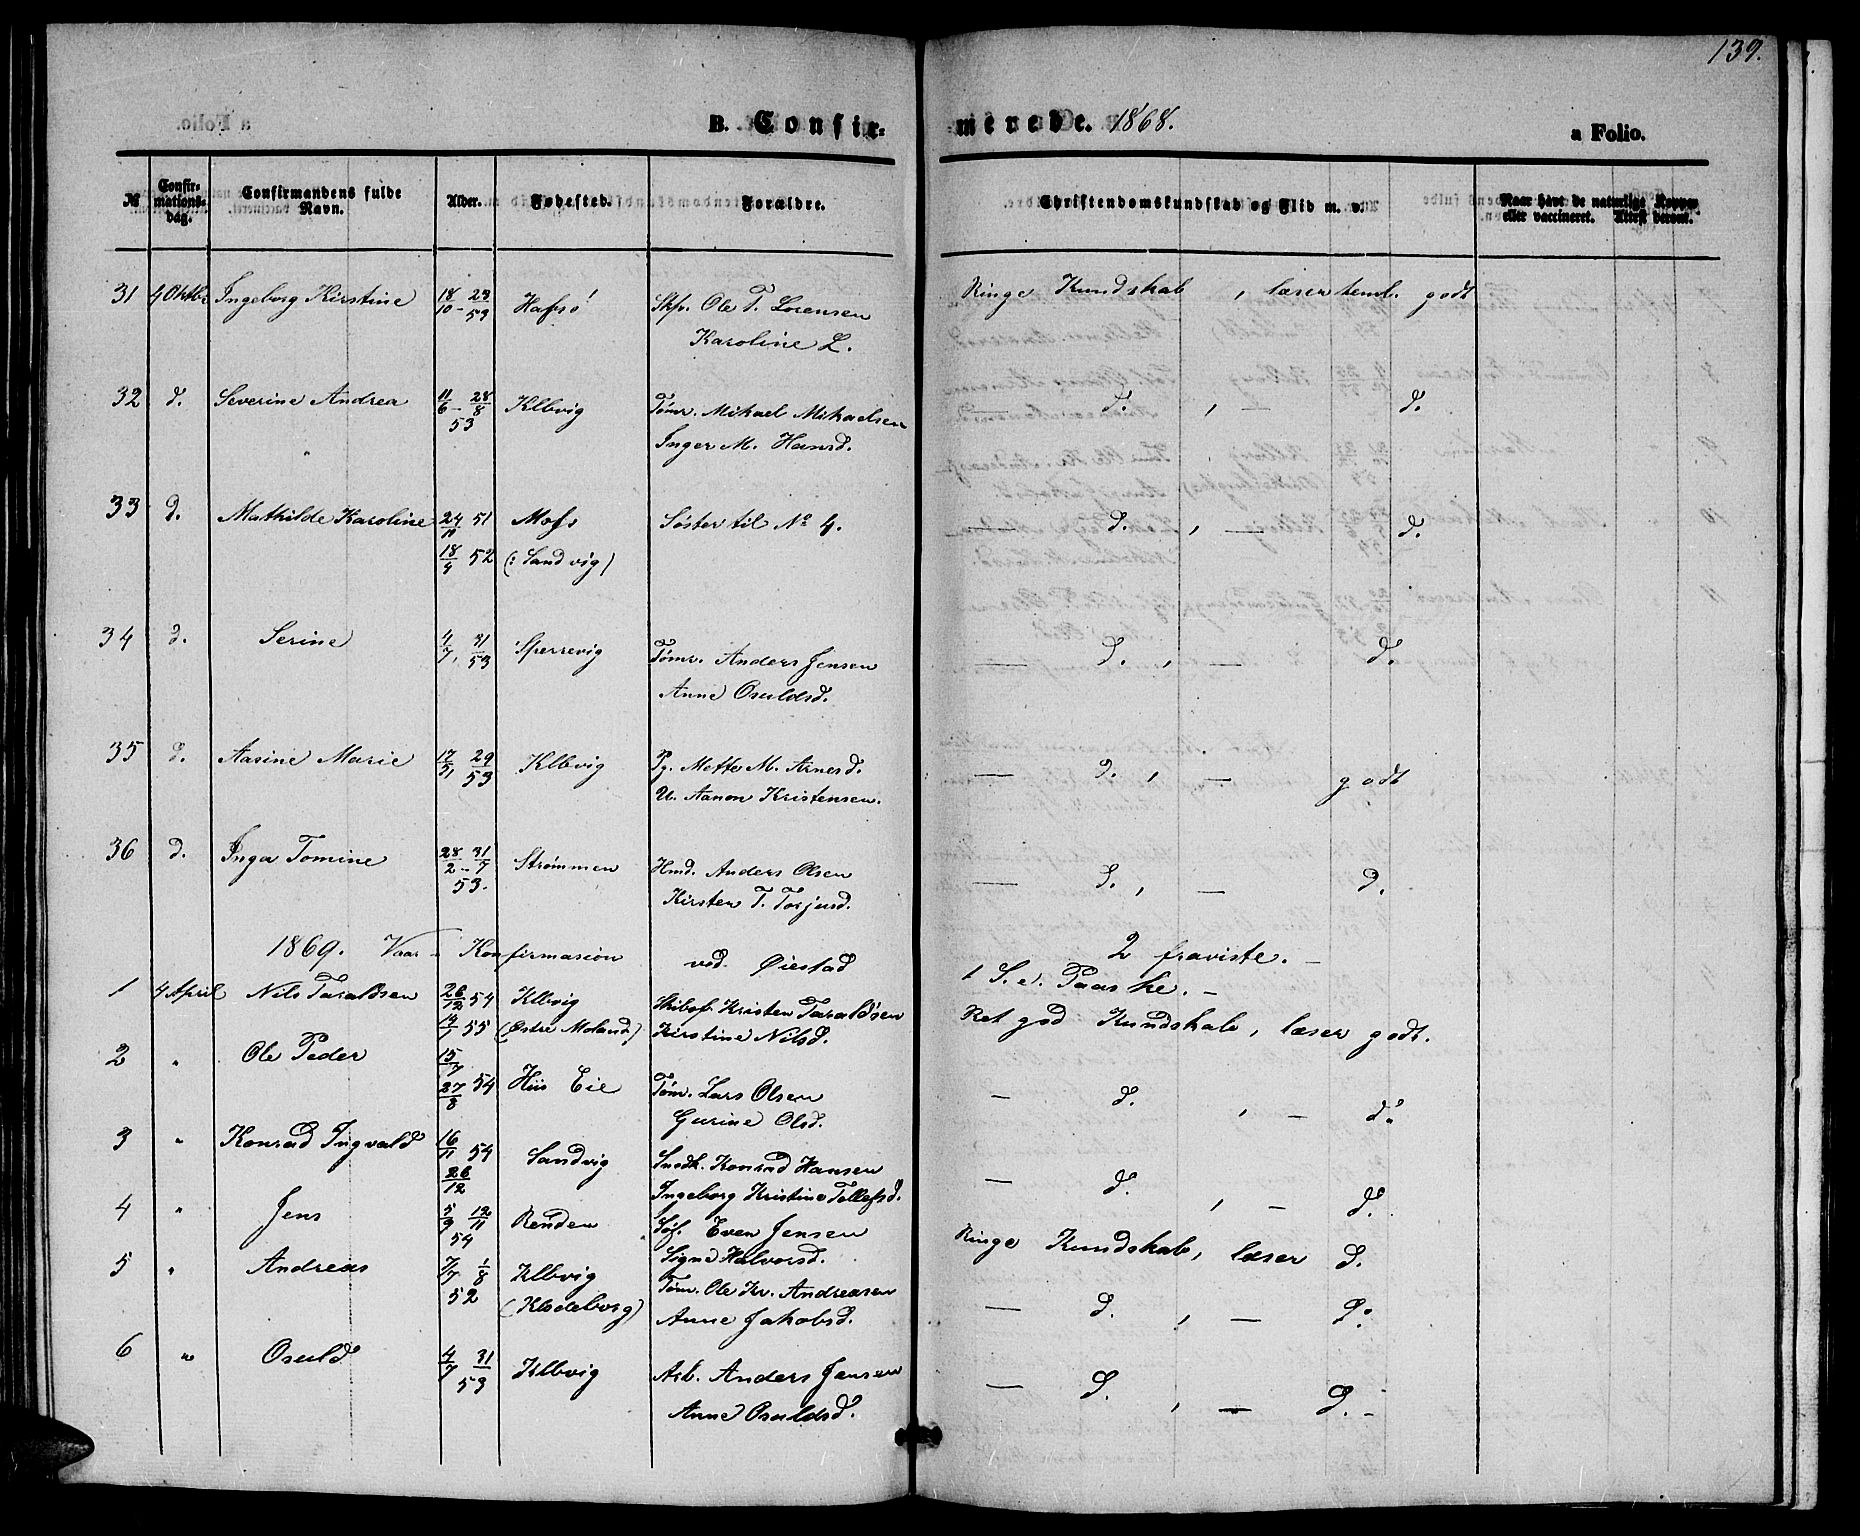 139.
B. Confir= merede. 1868. a Folio.
№ Confir-mations-dag. Confirmandens fulde Navn. Alder. Fødested. Forældre. Christendomskundskab og Flid m. v. Naar havt de naturlige Kopper eller vaccineret. Attest derom.
31 4 Oktbr Ingeborg Kirstine 18/10 - 29/53 Hafsö Skp. Ole T. Lorensen Ringe Kundskab, læser teml. godt
Karoline L.
32 d. Severine Andrea 11/6 - 28/8 Klbvig Tömr. Mikael Mikaelsen — d. , — d.
53 Inger M. Hansd.
33 d. Mathilde Karoline 24/11 51 Mofs Söster til No 4. — d. , — d.
18/4 52 (: Sandvig)
34 d. Serine 4/7, 31/53 Sperrevig Tömr. Anders Jensen — d. , — d.
Anne Osuldsd.
35 d. Aasine Marie 17/51 29/53 Klbvig Pg. Mette M. Arnesd. — d. , — godt
U. Aanon Kristensen.
36 d. Inga Tomine 28/2 - 31/7 Strömmen Hmd. Anders Olsen — d. , — d.
53. Kirsten T. Torjusd.
1869. Vaar - Konfirmasion ved Øiestad 2 fraviste. —
1 S. e. Paaske. —
1 4 April Nils Taraldsen 26/12 54 Klbvig Skibsf. Kristen Taraldsen Ret god Kundskab, læser godt.
14/7 55 (Østre Moland) Kirstine Nilsd.
2 " Ole Peder 15/7
27/8 54 Hiis Eie Tömr. Lars Olsen — d. , — d.
Gurine Olsd.
3 " Konrad Ingvald 16/11 54 Sandvig Snedk. Konrad Hansen — d. , — d.
26/12 Ingeborg Kristine Tellefsd.
4 " Jens 5/9 12/11 Renden Söf. Even Jensen Ringe Kundskab, læser d.
54 Signe Halvorsd.
5 " Andreas 7/7 1/8 Klbvig Tömr. Ole Kr. Andreasen — d. , — d.
52 (Klodeborg) Anne Jakobsd.
6 " Osuld 4/7 31 Klbvig Arb. Anders Jensen — d. , — d. -
53 Anne Osuldsd.